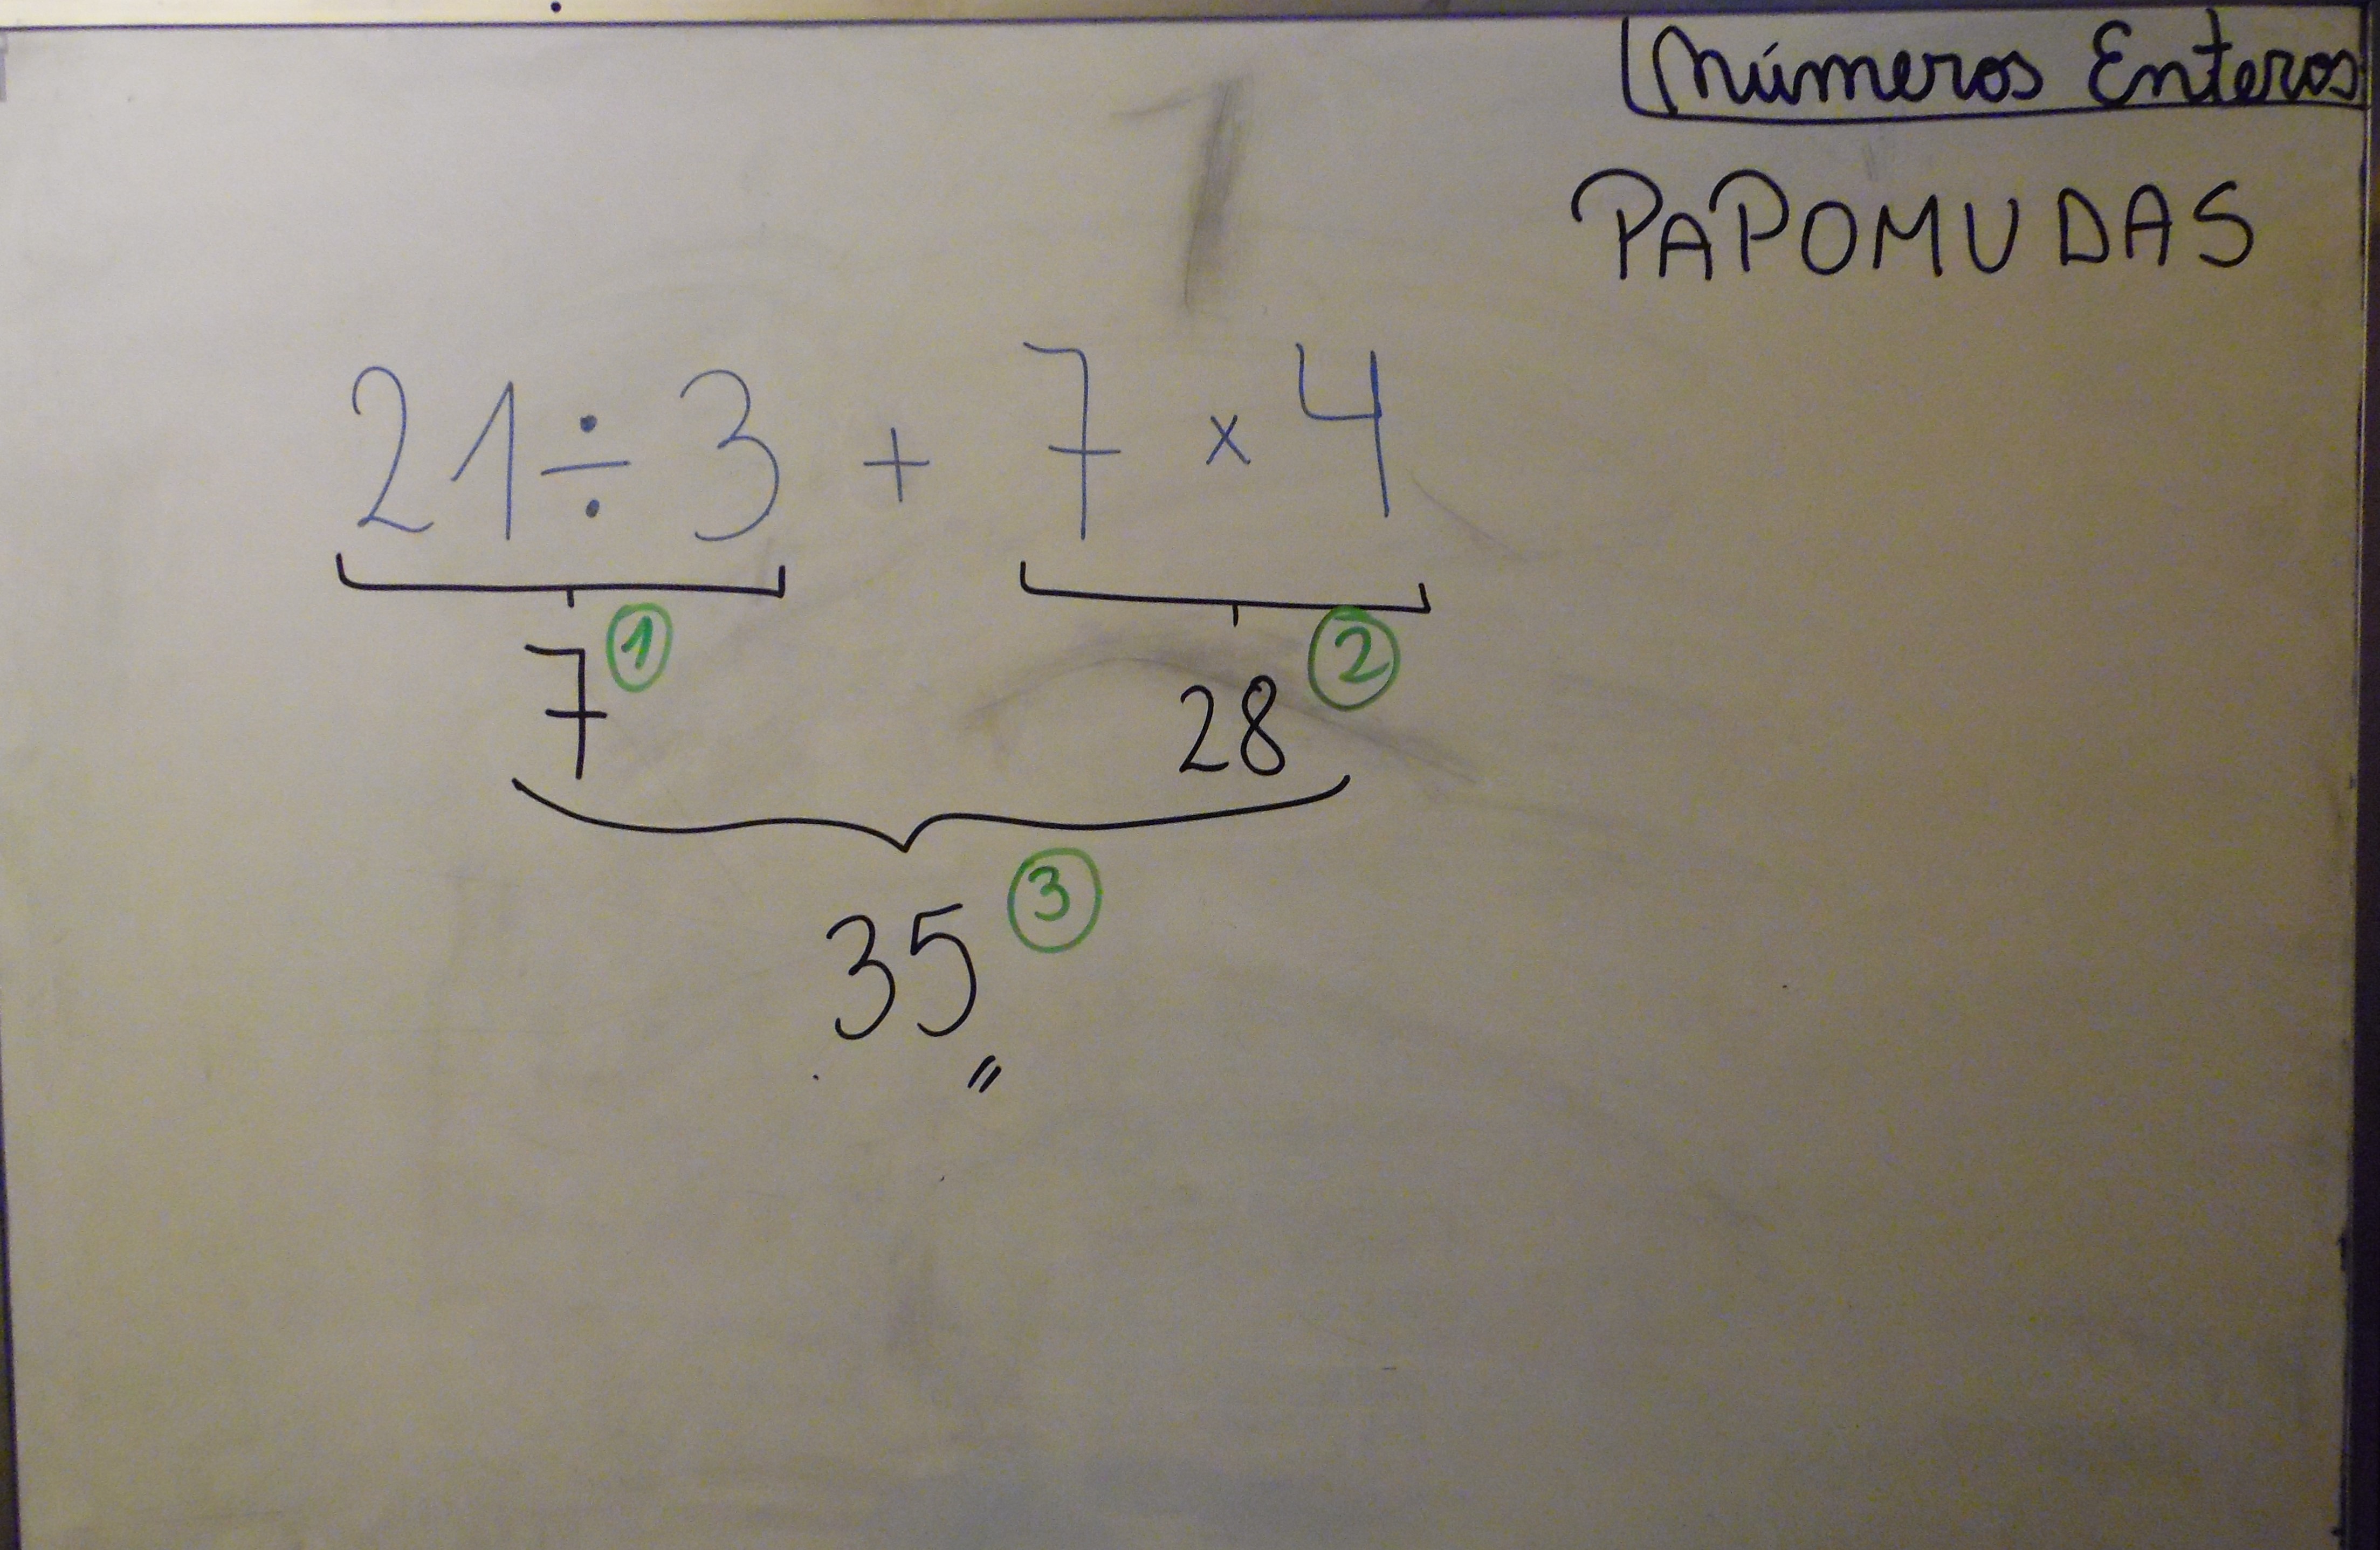 Números Enteros
PAPOMUDAS
21 ÷ 3 + 7 × 4
7 ① 28 ②
35 ③
〃